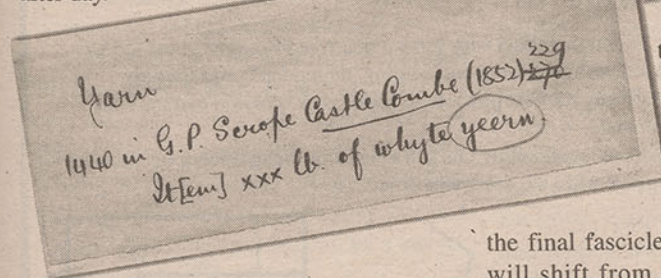 Yarn
1440 in G. P. Scrope Castle Combe (1852) 229
It[em] xxx lb. of whyte yeern
the final fascicle
will shift from